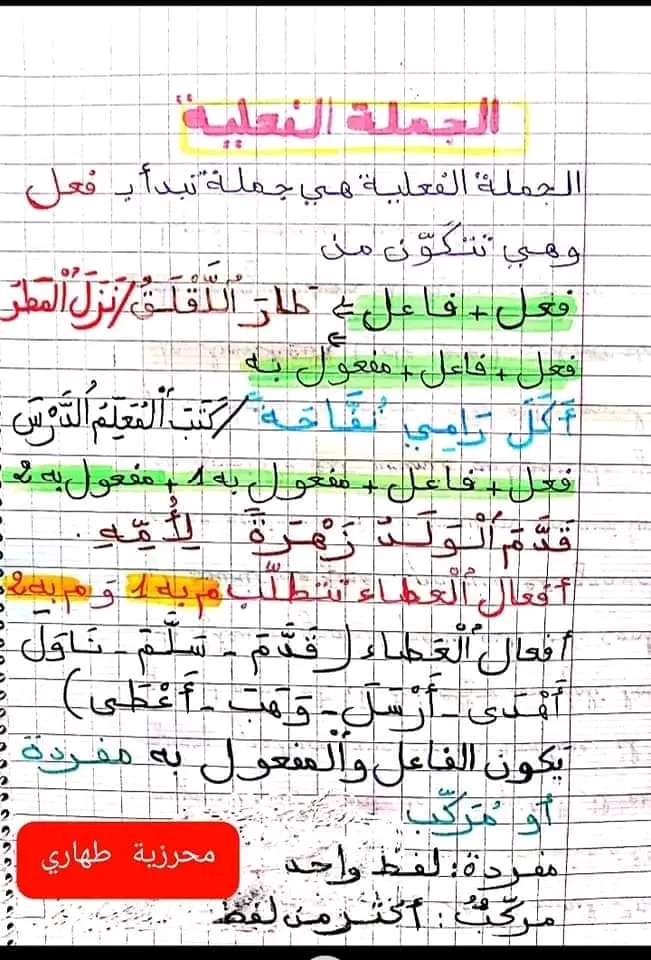 الجملة الفعلية
الجملة الفعلية هي جملة تبدأ بـ فعل
وهي تتكوّن من
فعل + فاعل ⇐ طَارَ اُللَّقْلَقُ / نَزَلَ اُلْمَطَرُ
فعل + فاعل + مفعول به ⇐
أَكَلَ رَامِي تُفَّاحَةً / كَتَبَ اُلْمُعَلِّمُ اُلدَّرْسَ
فعل + فاعل + مفعول به 1 + مفعول به 2
قَدَّمَ اُلْوَلَدُ زَهْرَةً لِأُمِّهِ .
أفعال اُلْعطاء تتطلّب م به 1 و م به 2
أفعال اُلْعَطاء ( قَدَّمَ - سَلَّمَ - نَاوَلَ
أَهْدَى - أَرْسَلَ - وَهَبَ - أَعْطَى )
يكون الفاعل واُلمفعول به مفردة
أو مُرَكّب
مفردة : لفظ واحد
مركّبٌ : أكثر من لفظ
محرزية طهاري